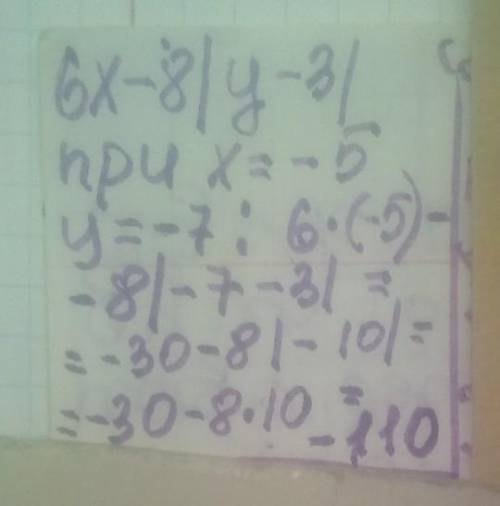 6x-8|y-3|
при x=-5
y=-7: 6·(-5)-
-8|-7-3|=
=-30-8|-10|=
=-30-8·10=-110